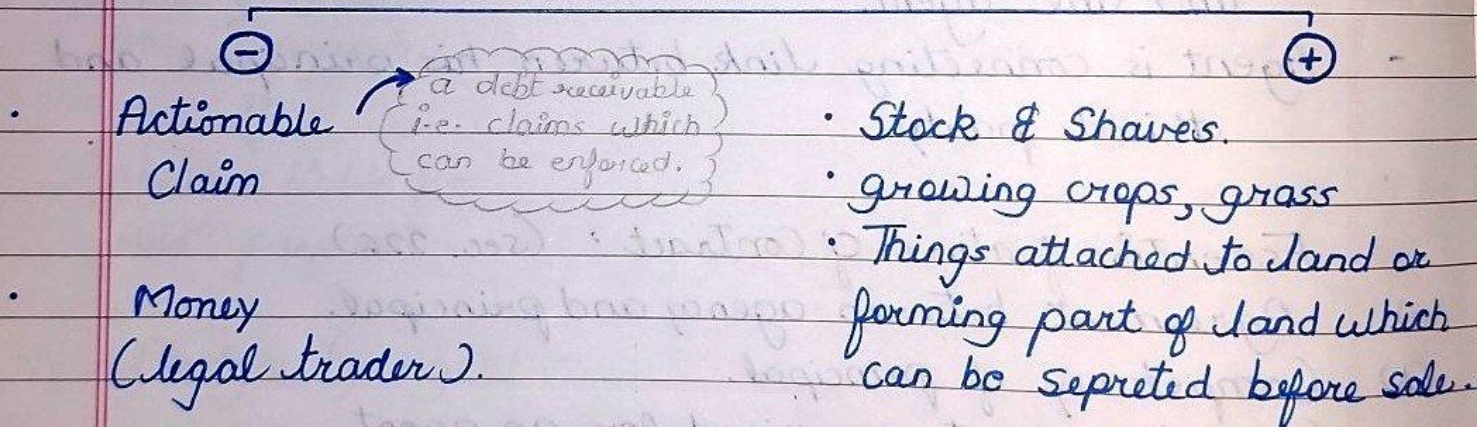 ⊖
⊕
• Actionable
Claim
a debt receivable
i.e. claims which
can be enforced.
• Money
(legal trader).
• Stock & Shares.
• growing crops, grass
• Things attached to land or
forming part of land which
can be sepreted before sale.